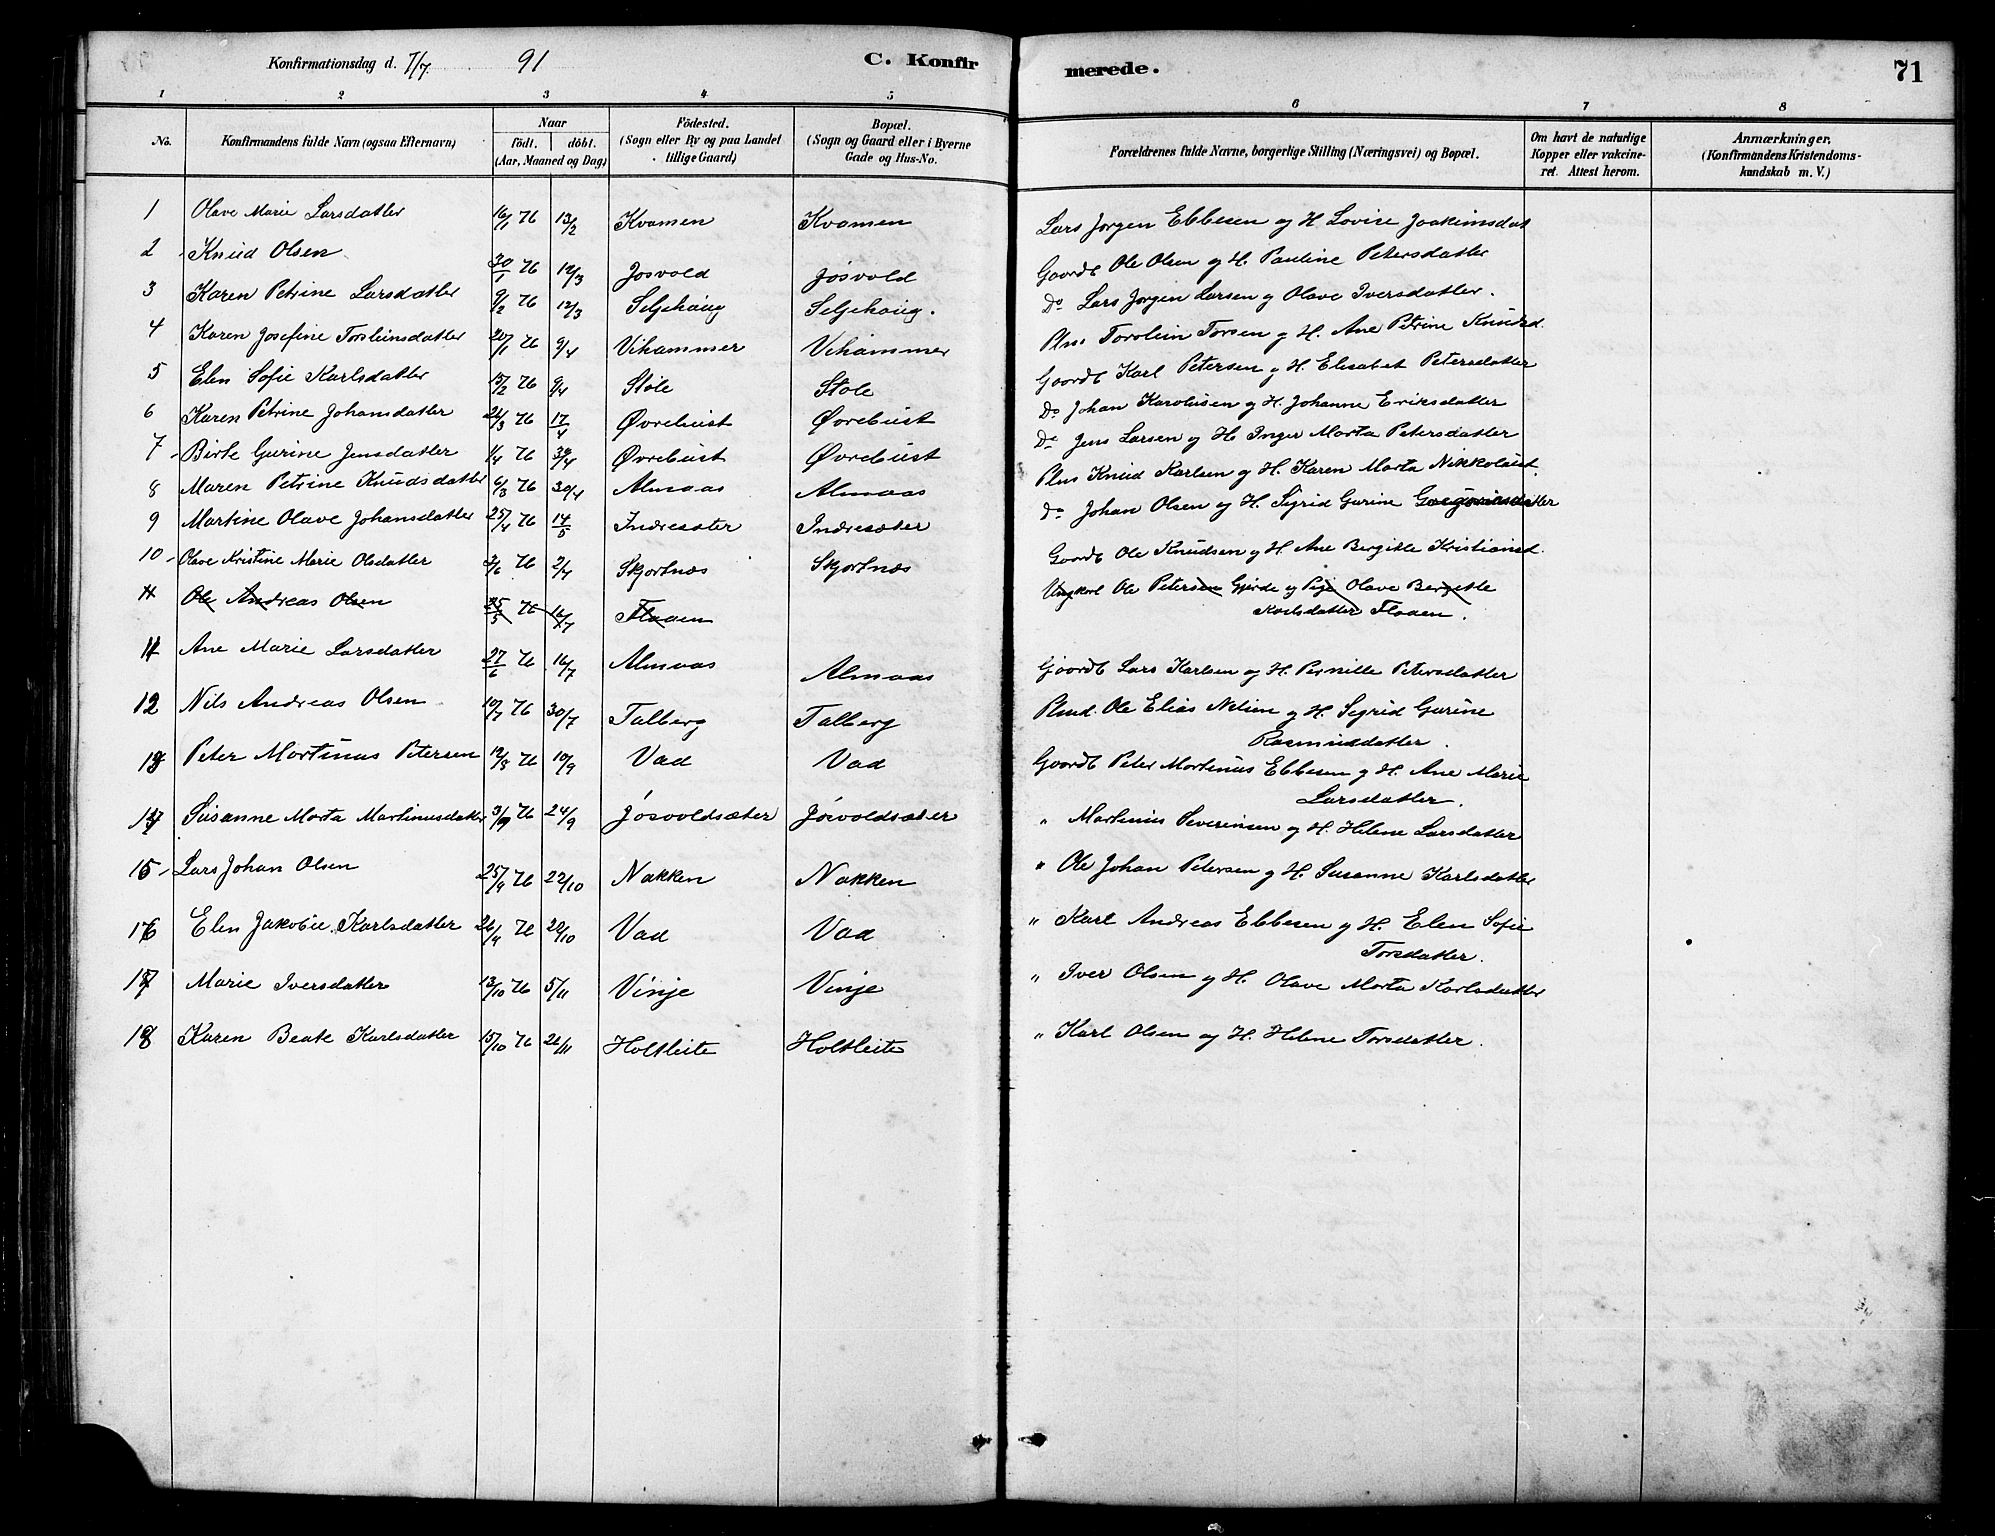 Konfirmationsdag d. 7/7 91 C. Konfirmerede. 71
1 2 3 4 5 6 7 8
No. Konfirmandens fulde Navn (ogsaa Efternavn) Naar födt. döbt. (Aar, Maaned og Dag) Födested. (Sogn eller By og paa Landet tillige Gaard) Bopæl. (Sogn og Gaard eller i Byerne Gade og Hus-No. Forældrenes fulde Navne, borgerlige Stilling (Næringsvei) og Bopæl. Om havt de naturlige Kopper eller vakcineret. Attest herom. Anmærkninger. (Konfirmandens Kristendomskundskab m. V.)
1 Olave Marie Larsdatter 16/1 76 13/2 Kvamen Kvamen Lars Jørgen Ebbesen og H Lovise Joakimsdat
2 Knud Olsen 30/1 76 12/3 Jøsvold Jøsvold Gaardb Ole Olsen og H. Pauline Petersdatter
3 Karen Petrine Larsdatter 9/2 76 12/3 Seljehaug Seljehaug. Do Lars Jørgen Larsen og Olave Iversdatter.
4 Karen Josefine Torsteinsdatter 20/1 76 9/4 Vihammer Vihammer Plms Torstein Torsen og H. Ane Petrine Knudsd.
5 Elen Sofie Karlsdatter 15/2 76 9/4 Støle Støle Gaardb Karl Petersen og H. Elisabet Petersdatter
6 Karen Petrine Johansdatter 26/3 76 17/4 Øvrebust Øvrebust Do Johan Karolusen og H. Johanne Eriksdatter
7 Birte Gurine Jensdatter 1/4 76 30/4 Øvrebust Øvrebust Do Jens Larsen og H Inger Marta Petersdatter
8 Maren Petrine Knudsdatter 6/3 76 30/4 Almaas Almaas Plms Knud Karlsen og H. Karen Marta Nikkolaisd.
9 Martine Olave Johansdatter 25/4 76 14/5 Indresæter Indresæter do Johan Olsen og H. Sigrid Gurine Gregoriusdatter
10 Olave Kristine Marie Olsdatter 3/6 76 2/7 Skjortnæs Skjortnæs Gaardb Ole Knudsen og H. Ane Bergitte Kristiansd.
11 Ole Andreas Olsen 25/5 76 16/7 Flaaen Ungkarl Ole Petersen Gjørde og Pige Olave Bergitte
Karlsdatter Flaaen.
11 Ane Marie Larsdatter 27/6 76 16/7 Almaas Almaas Gaardb Lars Karlsen og H. Pernille Petersdatter
12 Nils Andreas Olsen 10/7 76 30/7 Talberg Talberg Plmd. Ole Elias Nilsen og H. Sigrid Gurine
Rasmusdatter.
13 Peter Martinus Petersen 12/8 76 10/9 Vad Vad Gaardb Peter Martinus Ebbesen og H. Ane Marie
Larsdatter.
14 Susanne Marta Martinusdatter 3/9 76 24/9 Jøsvoldsæter Jøsvoldsæter " Martinus Severinsen og H. Helene Larsdatter
15 Lars Johan Olsen 25/9 76 22/10 Nakken Nakken " Ole Johan Petersen og H. Susanne Karlsdatter
16 Elen Jakobie Karlsdatter 26/9 76 22/10 Vad Vad " Karl Andreas Ebbesen og H. Elen Sofie
Torsdatter.
17 Marie Iversdatter 13/10 76 5/11 Vinje Vinje " Iver Olsen og H. Olave Marta Karlsdatter
18 Karen Beate Karlsdatter 15/10 76 26/11 Holtleite Holtleite " Karl Olsen og H. Helene Torsdatter.